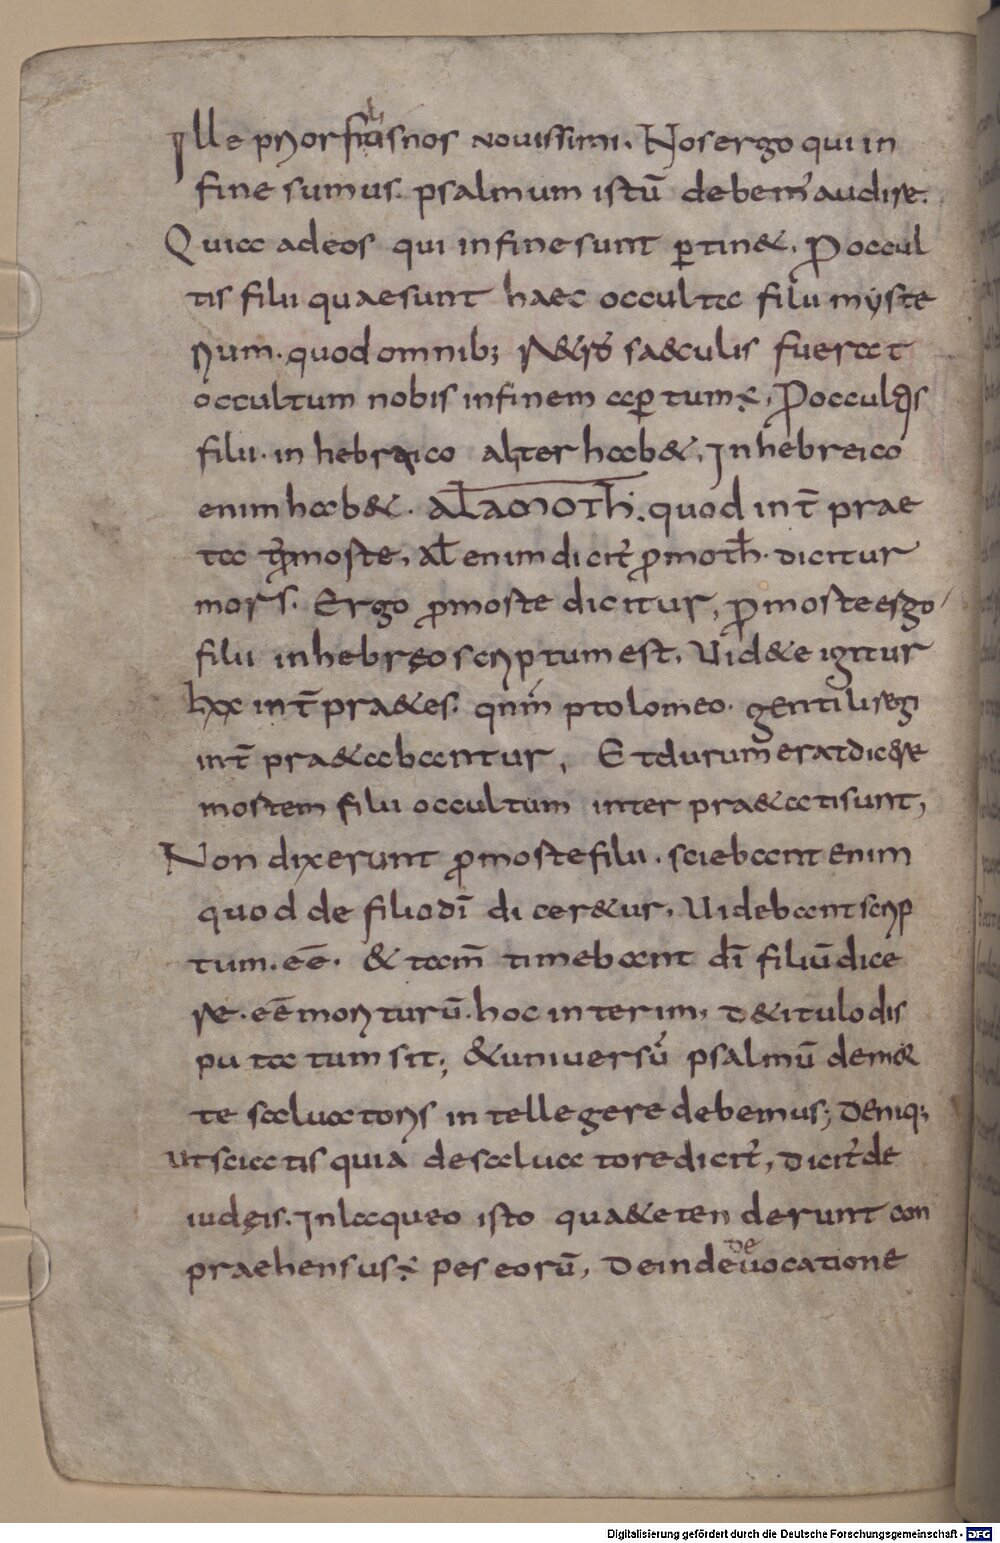 Ille prior fuit nos novissimi. Nos ergo qui in
fine sumus. psalmum istū debem' audire.
Quia ad eos qui in fine sunt ꝑtin&. Ꝓ occul
tis filii quae sunt haec occulta filii myste
rium. quod omnib; r&ro saeculis fuerat
occultum nobis in finem aꝑtum÷. Ꝓ occultis
filii. in hebraico aliter hab&. In hebreico
enim hab&. al̄amoth. quod int̄ prae
ta ꝓ morte. al̄ enim dicit' ꝓ moth. dicitur
mors. Ergo ꝓ morte dicitur, ꝓ morte ergo
filii in hebreo scriptum est. Vid&e igitur
hoc int̄ pra&es. qnm̄ ptolomeo. gentili regi
int̄ pra&abantur, Et durum erat dicere
mortem filii occultum inter pra&ati sunt,
Non dixerunt ꝓ morte filii. sciebant enim
quod de filio dī dicer&ur. Videbant scrip
tum. eē. & tam̄ timebant dī filiū dice
re. eē moriturū. hoc interim, d& itulo dis
putatum sit; & universū psalmū de m&
te salvatoris intellegere debemus; Deniq;
ut sciatis quia de salvatore dicit', dicit' de
iudęis. In laqueo isto qua& etenderunt con
praehensus÷ pes eorū, Deinde de vocatione
Digitalisierung gefördert durch die Deutsche Forschungsgemeinschaft - DFG